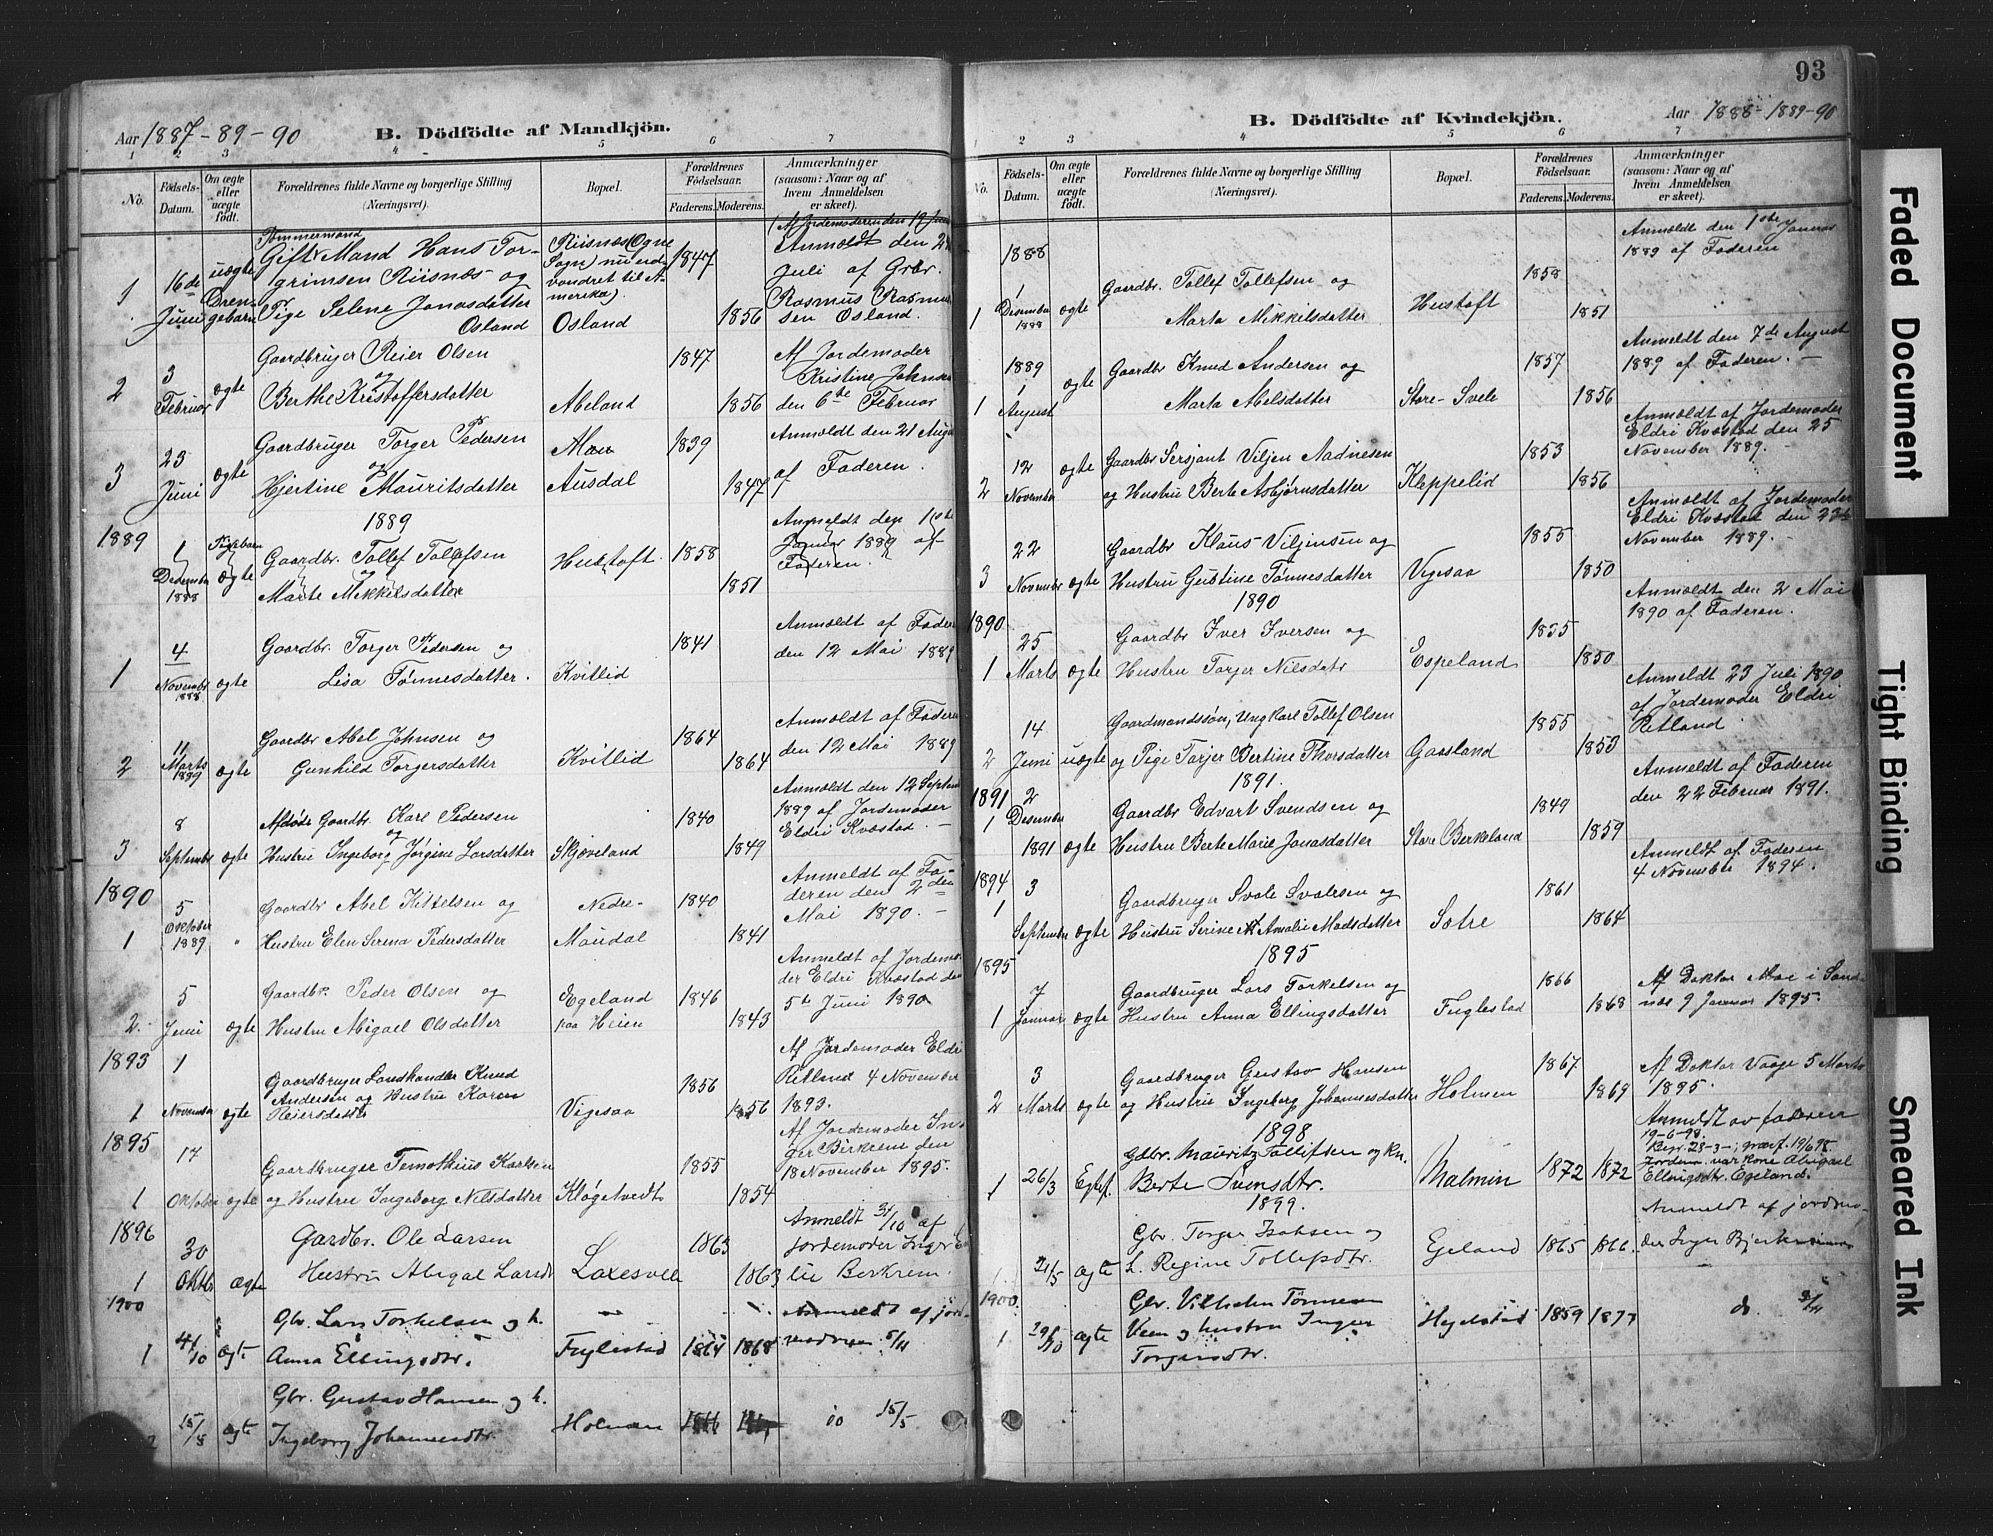 Aar 1887-89-90 B. Dödfödte af Mandkjön.
1 2 3 4 5 6 7
No. Födsels-Datum. Om ægte eller uægte födt. Forældrenes fulde Navne og borgerlige Stilling (Næringsvei). Bopæl. Forældrenes Födselsaar. Faderens. Moderens. Anmærkninger (saasom: Naar og af hvem Anmeldelsen er skeet).
Tømmermand (Af Jordemoderen den 19 Juni
Gift Mand Hans Tor- Riisnæs (Ogne 1847 Anmeldt den 2
1 16de uægte grimsen Riisnæs og Sogn) nu ud- Juli af Grbr.
Juni Dren- Pige Selene Jonasdatter vandret til A- 1856 Rasmus Rasmus-
gebarn Osland merika). Osland sen Osland.
Gaardbruger Reier Olsen 1847 Af Jordemoder
2 3 ægte og Kristine Johnsen
Februar Berthe Kristoffersdatter Abeland 1856 den 6te Februar
Gaardbruger Torger Pedersen 1839 Anmeldt den 21 Aug
3 23 ægte og af Faderen.
Juni Hjertine Mauritsdatter Ausdal 1847
1889
1889 1 Pigebarn Gaardbr. Tollef Tollefsen Hustoft. 1858 Anmeldt den 1ste
Desember ægte og Januar 1889 af
1888 Marte Mikkilsdatter 1851 Faderen.
Gaardbr. Torger Pedersen og 1841 Anmeldt af Fader
1 4 November 1888 ægte Lisa Tønnesdatter. Kvitlid den 12 Mai 1889
Gaardbr Abel Johnsen og 1864 Anmeldt af Faderen
2 11 Marts 1889 ægte Gunhild Torgersdatter Kvitlid 1864 den 12 Mai 1889
Afdøde Gaardbr. Karl Pedersen 1840 Anmeldt den 12 Septem
8 og 1889 af Jordemoder
3 September ægte Hustru Ingeborg Jørgine Larsdatter Skjæveland 1849 Eldri Kvæstad. -
1890 5 Gaardbr Abel Kittelsen og Nedre- 1840 Anmeldt af Fa-
Oktober deren den 2den
1 1889 " Hustru Elen Serena Pedersdatter Maudal 1841 Mai 1890. -
5 Gaardbr. Peder Olsen og Egeland 1846 Anmeldt af Jordemo-
der Eldri Kvæstad den
2. Juni ægte Hustru Abigael Olsdatter paa Heien 1843 5te Juni 1890
1893 1 Gaardbruger Landhandler Knud 1856 Af Jordemoder Eldri
Andersen og Hustru Karen Retland 4 November
1 November ægte Reiersdatter Vigesaa 1856 1893.
1895 17 Gaardbruger Temothius Karlsen 1855 Af Jordemoder In-
ger Birkrem den
1 Oktober ægte og Hustru Ingeborg Nilsdatter Kløgetvedt 1854 18 November 1895.
1896 30 Gardbr. Ole Larsen 1863 Anmeldt 31/10 af
1 Oktbr ægte Hustru Abigal Larsdt Laxesvele 1863 Jordemoder Inger
lie Berkrem
1900 Gbr. Lars Torkelsen og h. Anmeldt af jord-
1 4/10 ægte Anna Ellingsdtr. Fuglestad 1864 1868 moderen 5/11
Gbr. Gustav Hansen og h.
2 15/3 ægte Ingeborg Johannesdtr. Holmen do 15/5
93
B. Dödfödte af Kvindekjön. Aar 1888-1889-90
1 2 3 4 5 6 7
No. Födsels-Datum. Om ægte eller uægte födt. Forældrenes fulde Navne og borgerlige Stilling (Næringsvei). Bopæl. Forældrenes Födselsaar. Faderens. Moderens. Anmærkninger (saasom: Naar og af hvem Anmeldelsen er skeet).
1888 1858 Anmeldt den 1ste Januar
1 Gaardbr. Tollef Tollefsen og 1889 af Faderen
1 Desember 1888 ægte Marta Mikkilsdatter Hustoft 1851
1889 Gaardbr Knud Andersen og 1857 Anmeldt den 7de August
1889 af Faderen. -
1 1 August ægte Marta Abelsdatter Store-Svele 1856
12 ægte Gaardbr Sersjant Viljen Aadnesen 1853 Anmeldt af Jordemoder
Eldri Kvæstad den 25
2 November og Hustru Berte Asbjørnsdatter Kleppelid 1856 November 1889.
22 Gaardbr Klaus Viljensen og 1855 Anmeldt af Jordemoder
Eldri Kvæstad den 23de
3 November ægte Hustru Gustine Tønnesdatter Vigesaa 1850 November 1889. -
1890
1890 25 Gaardbr Iver Iversen og 1855 Anmeldt den 2 Mai
1890 af Faderen.
1 Marts ægte Hustru Torger Nilsdatr Espeland 1850
14 Gaardmandssøn, Ungkarl Tollef Olsen 1855 Anmeldt 23 Juli 1890
af Jordemoder Eldri
2 Juni uægte og Pige Torjer Bertine Thorsdatter Gaasland 1853 Retland
1891.
1891 2 Gaardbr Edvart Svendsen og 1849 Anmeldt af Faderen
den 22 Februar 1891.
1 Desember 1891 ægte Hustru Berte Marie Jonasdatter Store Berkeland 1859
1894 3 Gaardbruger Svale Svalesen og 1861 Anmeldt af Faderen
4 November 1894.
1 September ægte Hustru Serine Amalie Madsdatter Sotre 1864
1895
1895 7 Gaardbruger Lars Torkelsen og 1866 Af Doktor Moe i Sand-
1 Januar ægte Hustru Anna Ellingsdatter Fuglestad 1868 næs 9 Januar 1895.
3 Gaardbruger Gustav Hansen 1867 Af Doktor Vaage 5 Marts
2 Marts ægte og Hustru Ingeborg Johannesdatter Holmen 1869 1895.
1898 Anmeldt av faderen
Gdbr. Mauritz Tollefsen og kn. 19-6-98.
1 26/3 Egtef. Berte Svensdtr. Malmin 1872 1872 Jordm. var kone Abigael
1899. Ellingsdtr. Egeland.
Gbr. Torger Isaksen og Anmeldt af jordmo-
1 21/5 ægte h. Regine Tollefsdtr. Egeland 1865 1866 der Inger Bjerkreim
1900. Gbr. Vilhelm Tønnesen
1 29/10 ægte Veen og hustru Inger 1859 1877 do. 3/11
Torgersdtr.
Faded Document
Tight Binding
Smeared Ink